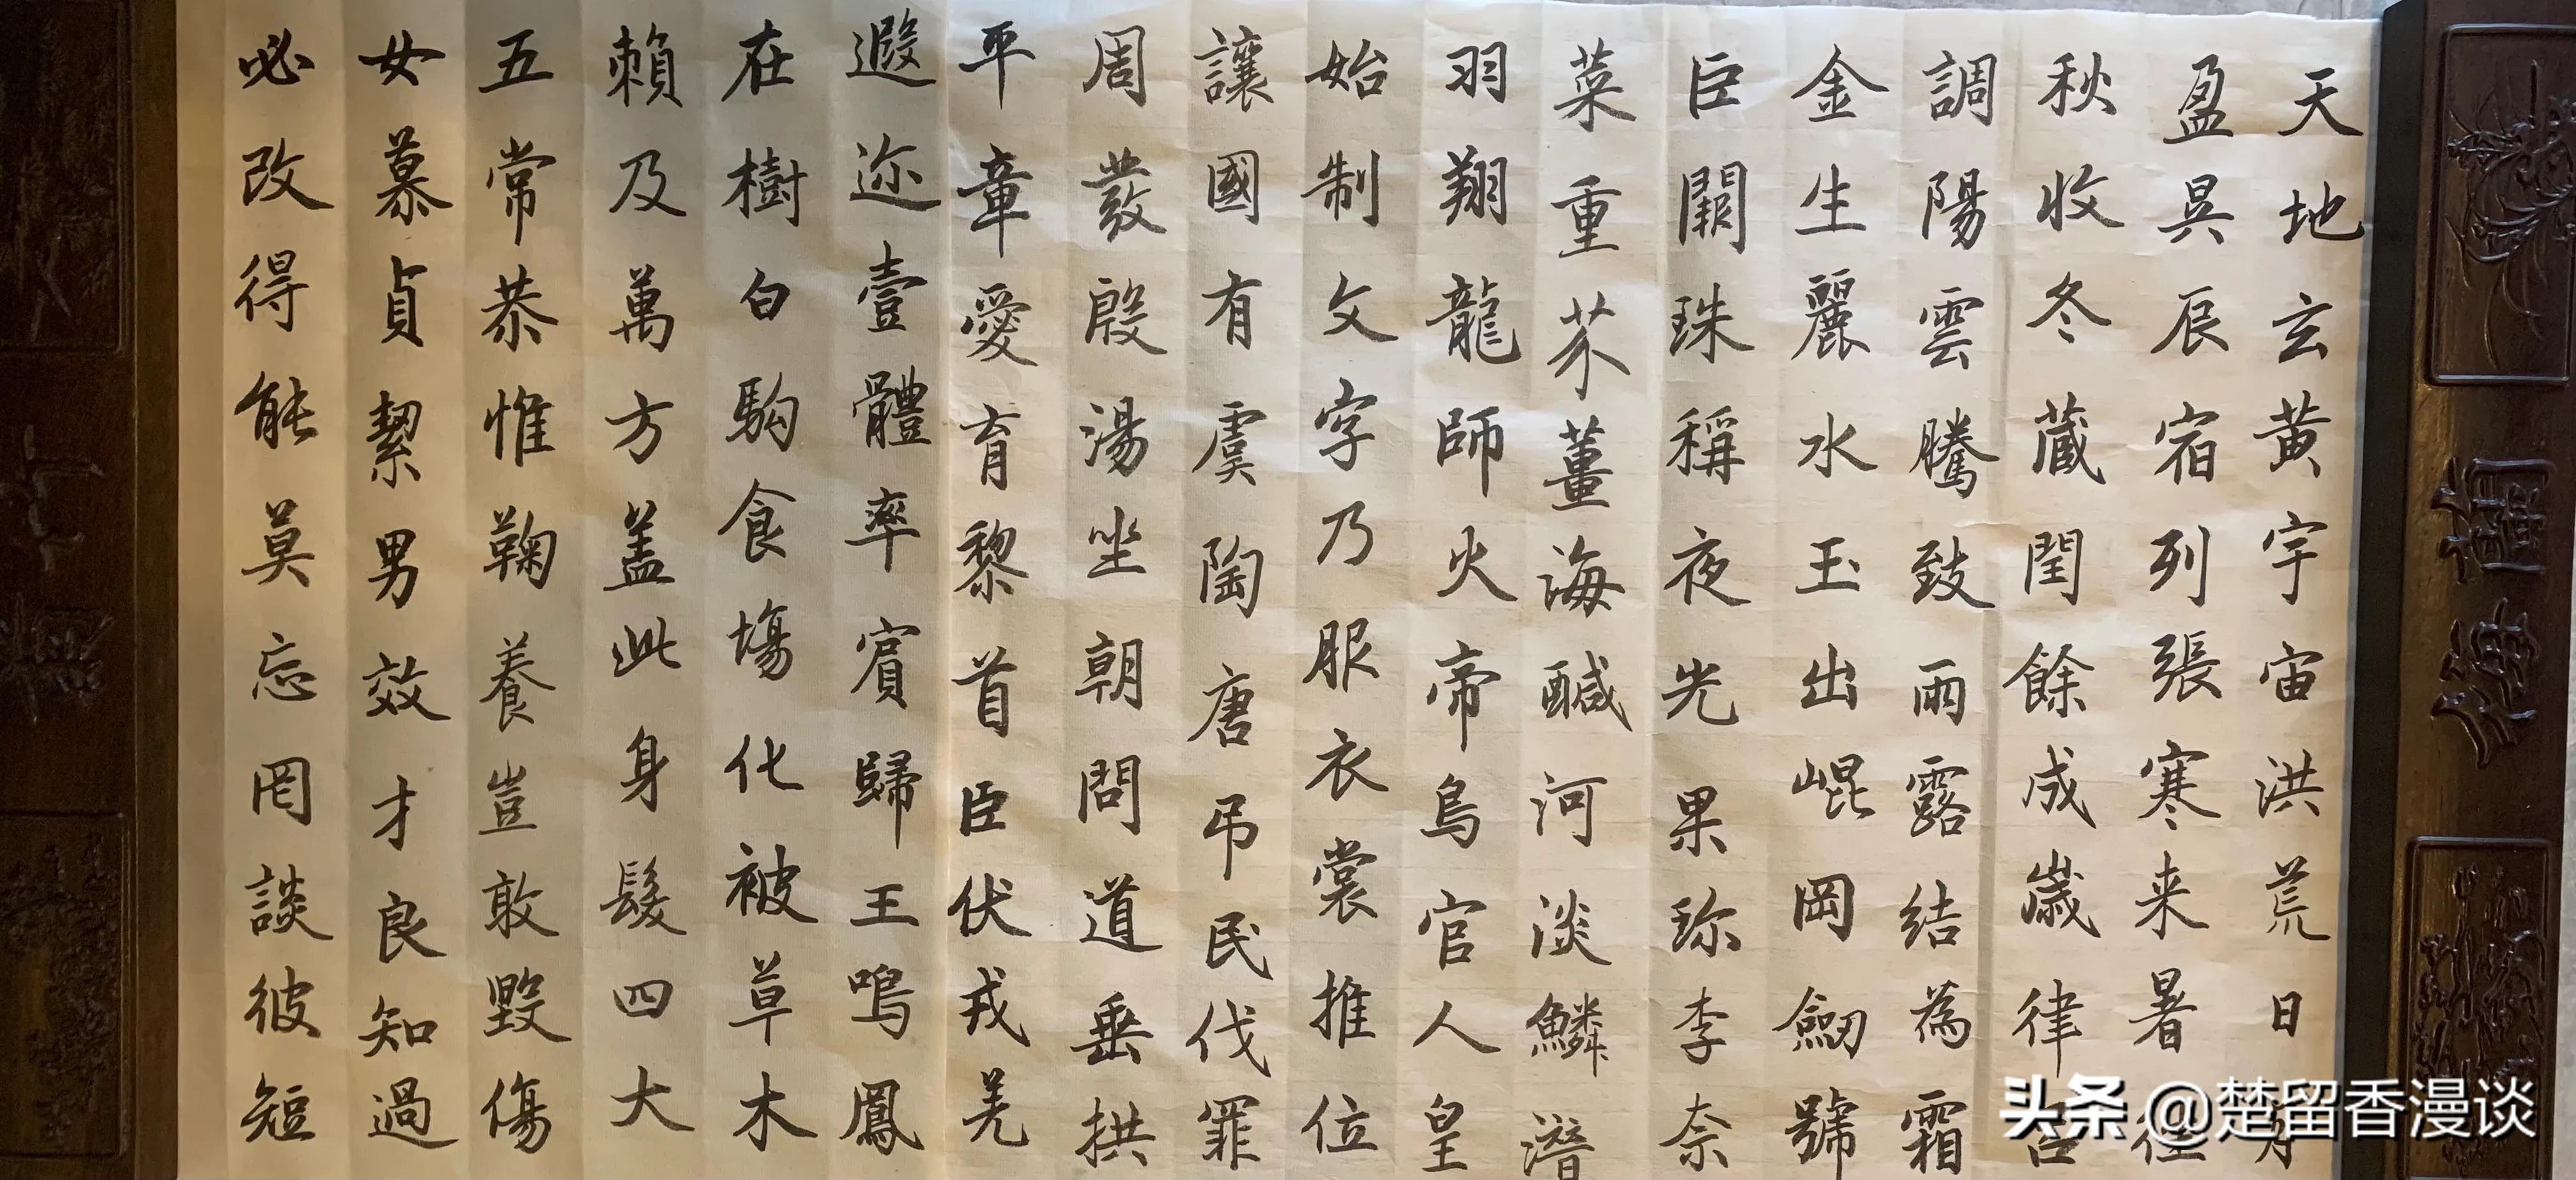 天地玄黃宇宙洪荒日月
盈昃辰宿列張寒来暑往
秋收冬蔵閏餘成嵗律吕
調陽雲騰致雨露結為霜
金生麗水玉出崐岡劒號
臣闕珠稱夜光果珎李柰
菜重芥薑海醎河淡鱗潛
羽翔龍師火帝鳥官人皇
始制文字乃服衣裳推位
讓國有虞陶唐弔民伐罪
周發殷湯坐朝問道垂拱
平章愛育黎首臣伏戎羌
遐迩壹體率賓歸王鳴鳳
在樹白駒食場化被草木
賴及萬方盖此身髮四大
五常恭惟鞠養豈敢毀傷
女慕貞絜男效才良知過
必改得能莫忘罔談彼短
头条 @楚留香漫谈